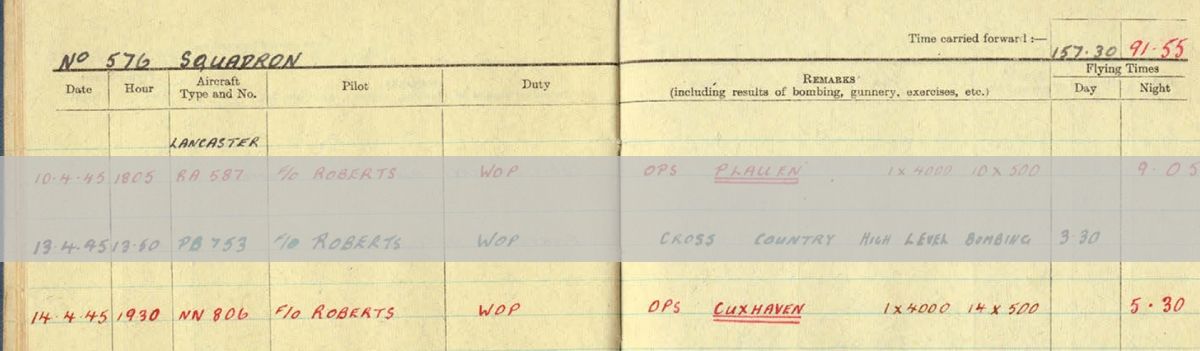 Time carried forward :— 157.30 91.55
No 576 SQUADRON
Flying Times
Date Hour Aircraft Type and No. Pilot Duty REMARKS (including results of bombing, gunnery, exercises, etc.) Day Night
LANCASTER
10.4.45 1805 RA 587 F/O ROBERTS WOP OPS PLAUEN 1 x 4000 10 x 500 9.05
13.4.45 13.50 PB 753 F/O ROBERTS WOP CROSS COUNTRY HIGH LEVEL BOMBING 3.30
14.4.45 1930 NN 806 F/O ROBERTS WOP OPS CUXHAVEN 1 x 4000 14 x 500 5.30